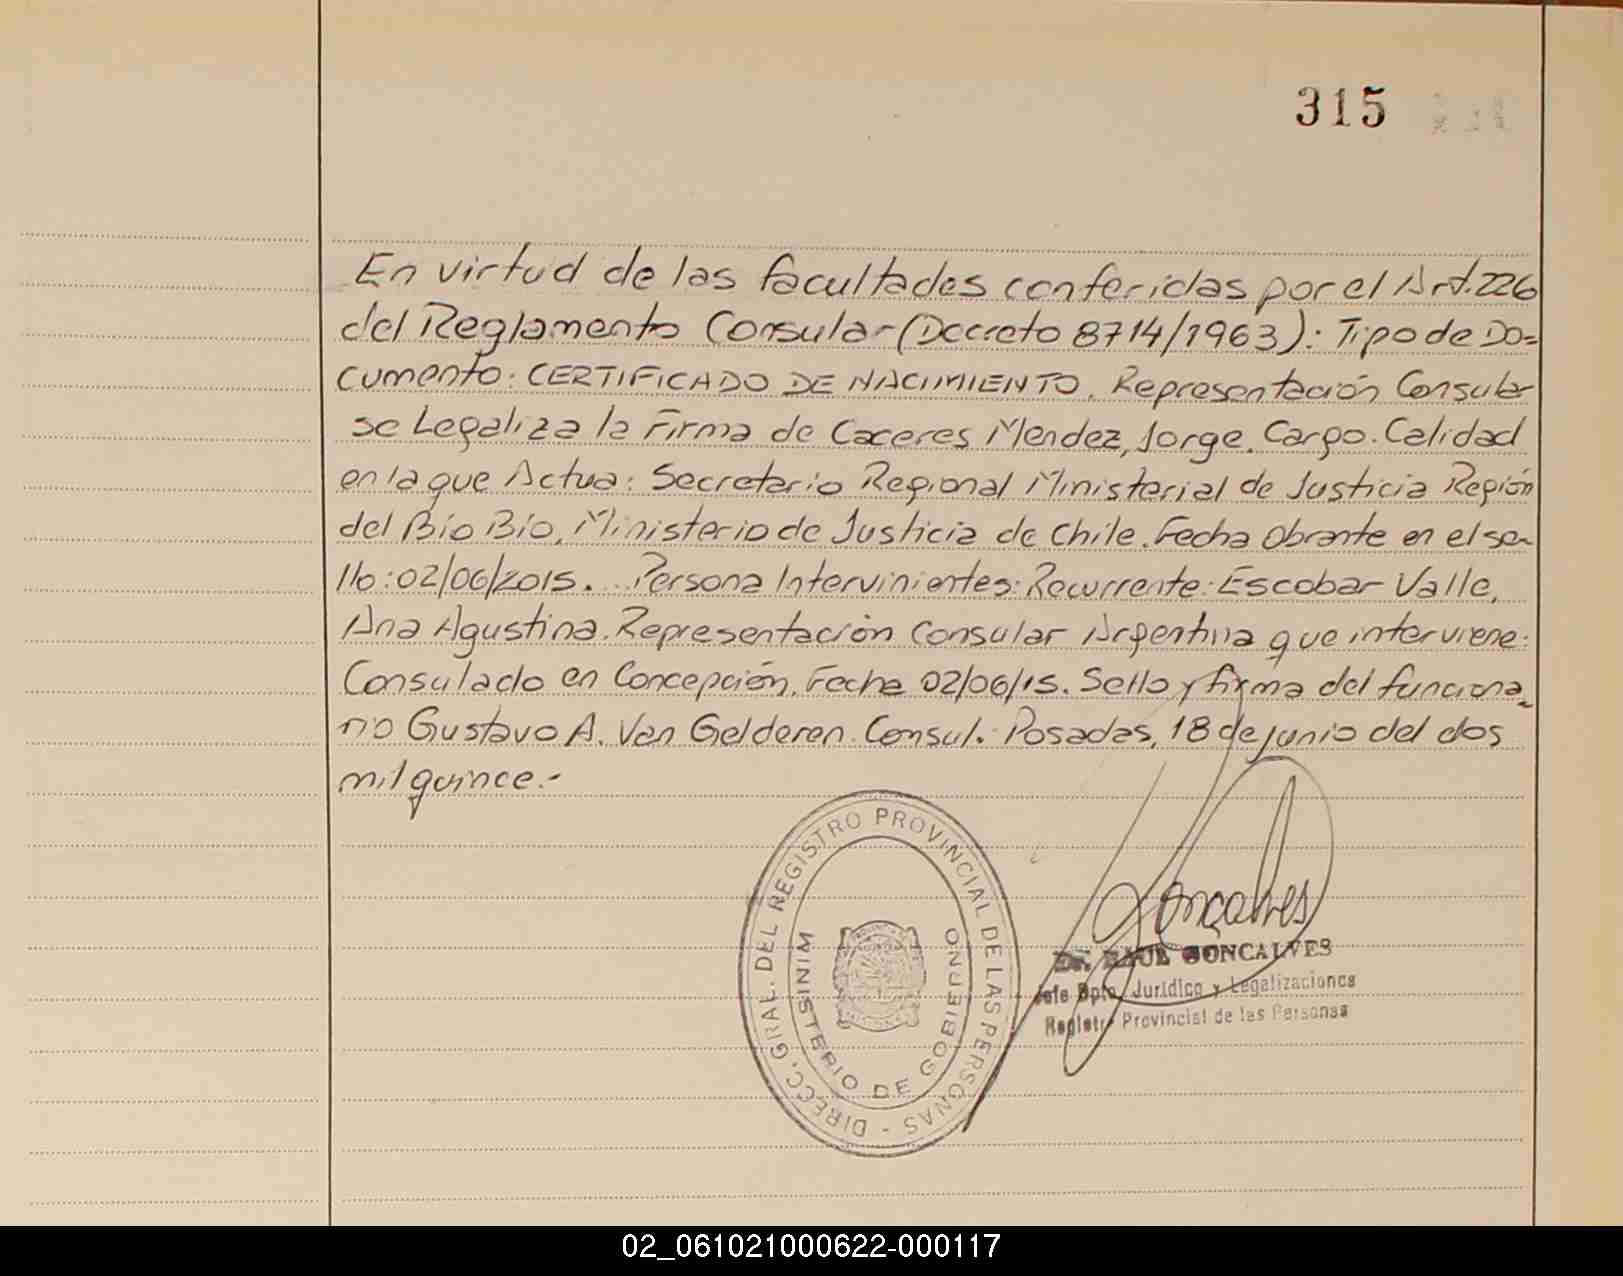 315
En virtud de las facultades conferidas por el Art. 226
del Reglamento Consular (Decreto 8714/1963): Tipo de Do=
cumento: CERTIFICADO DE NACIMIENTO. Representación Consular
se Legaliza la Firma de Caceres Mendez, Jorge. Cargo. Calidad
en la que Actua: Secretario Regional Ministerial de Justicia Región
del Bío Bío, Ministerio de Justicia de Chile. Fecha Obrante en el se-
llo: 02/06/2015. Persona Intervinientes: Recurrente: Escobar Valle,
Ana Agustina. Representación Consular Argentina que interviene:
Consulado en Concepción. Fecha 02/06/15. Sello y firma del funciona-
rio Gustavo A. Van Gelderen. Consul. Posadas, 18 de junio del dos
mil quince.-
DIRECC. GRAL. DEL REGISTRO PROVINCIAL DE LAS PERSONAS -
MINISTERIO DE GOBIERNO
Goncalves
Dr. RAUL GONCALVES
Jefe Dpto. Jurídico y Legalizaciones
Registro Provincial de las Personas
02_061021000622-000117